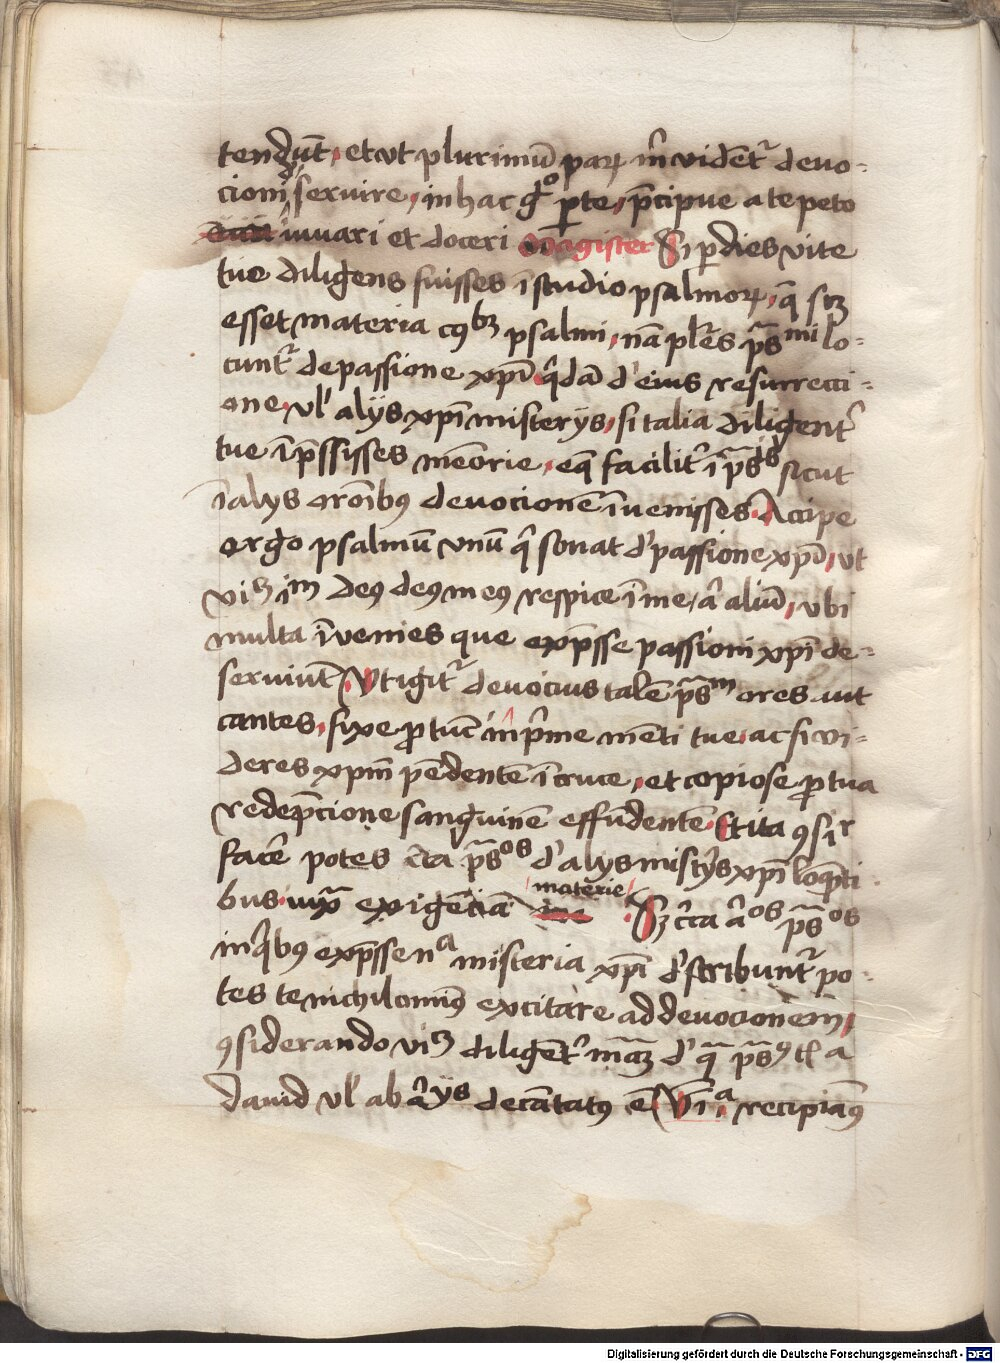 tendūt, et ut plurimū parꝝ m̄ vidētʳ deuo-
cioni seruire, in hac gͦ ꝑte, p̄cipue a te peto
iuuari et doceri Magister Si ꝑ dies vite
tue diligens fuisses ī studio psalmoꝝ, q̄ scꝫ
esset materia cꝯbꝫ psalmi, nā plēs p̄smi lo-
cuntʳ de passione xp̄i q̄dā d' eius resurrecci-
one, vl' alijs xp̄i misterijs, si talia diligentʳ
tue īp̄ssisses memorie, eq̄ facilitʳ ī p̄sis sicut
ī alijs orōibꝯ deuocionē īuenisses. Accipe
ergo psalmū vnū q̄ sonat d' passione xp̄i, vt
viꝫ im̄ deꝯ deꝯ meꝯ respice ī me, a' aliū, vbi
multa īuenies que exp̄sse passioni xp̄i de-
seruiūt Vt igitʳ deuocius talē p̄sm ores aut
cantes, fixe ꝓ tūc īp̄me menti tue, ac si vi-
deres xpm̄ pēdentē ī cruce, et copiose ꝓ tua
redēpcione sanguinē effudentē Et ita ꝯsiʳ
facē potes cͥca p̄sos d' alijs mistʳijs xp̄i loq̄nti
bus, iuxᵃ exigēciā materie Sꝫ cͥca a'os p̄sos
in qͥbꝯ exp̄sse nᵃ misteria xp̄i d'scribuntʳ po-
tes te nichilominꝯ excitare ad deuocionem,
ꝯsiderando viꝫ diligētʳ māꝫ d' q̄ p̄sꝯ tl' a
dauid vl' ab a'ijs decātatꝯ ē Vn̄ ᵃ recipiamꝯ